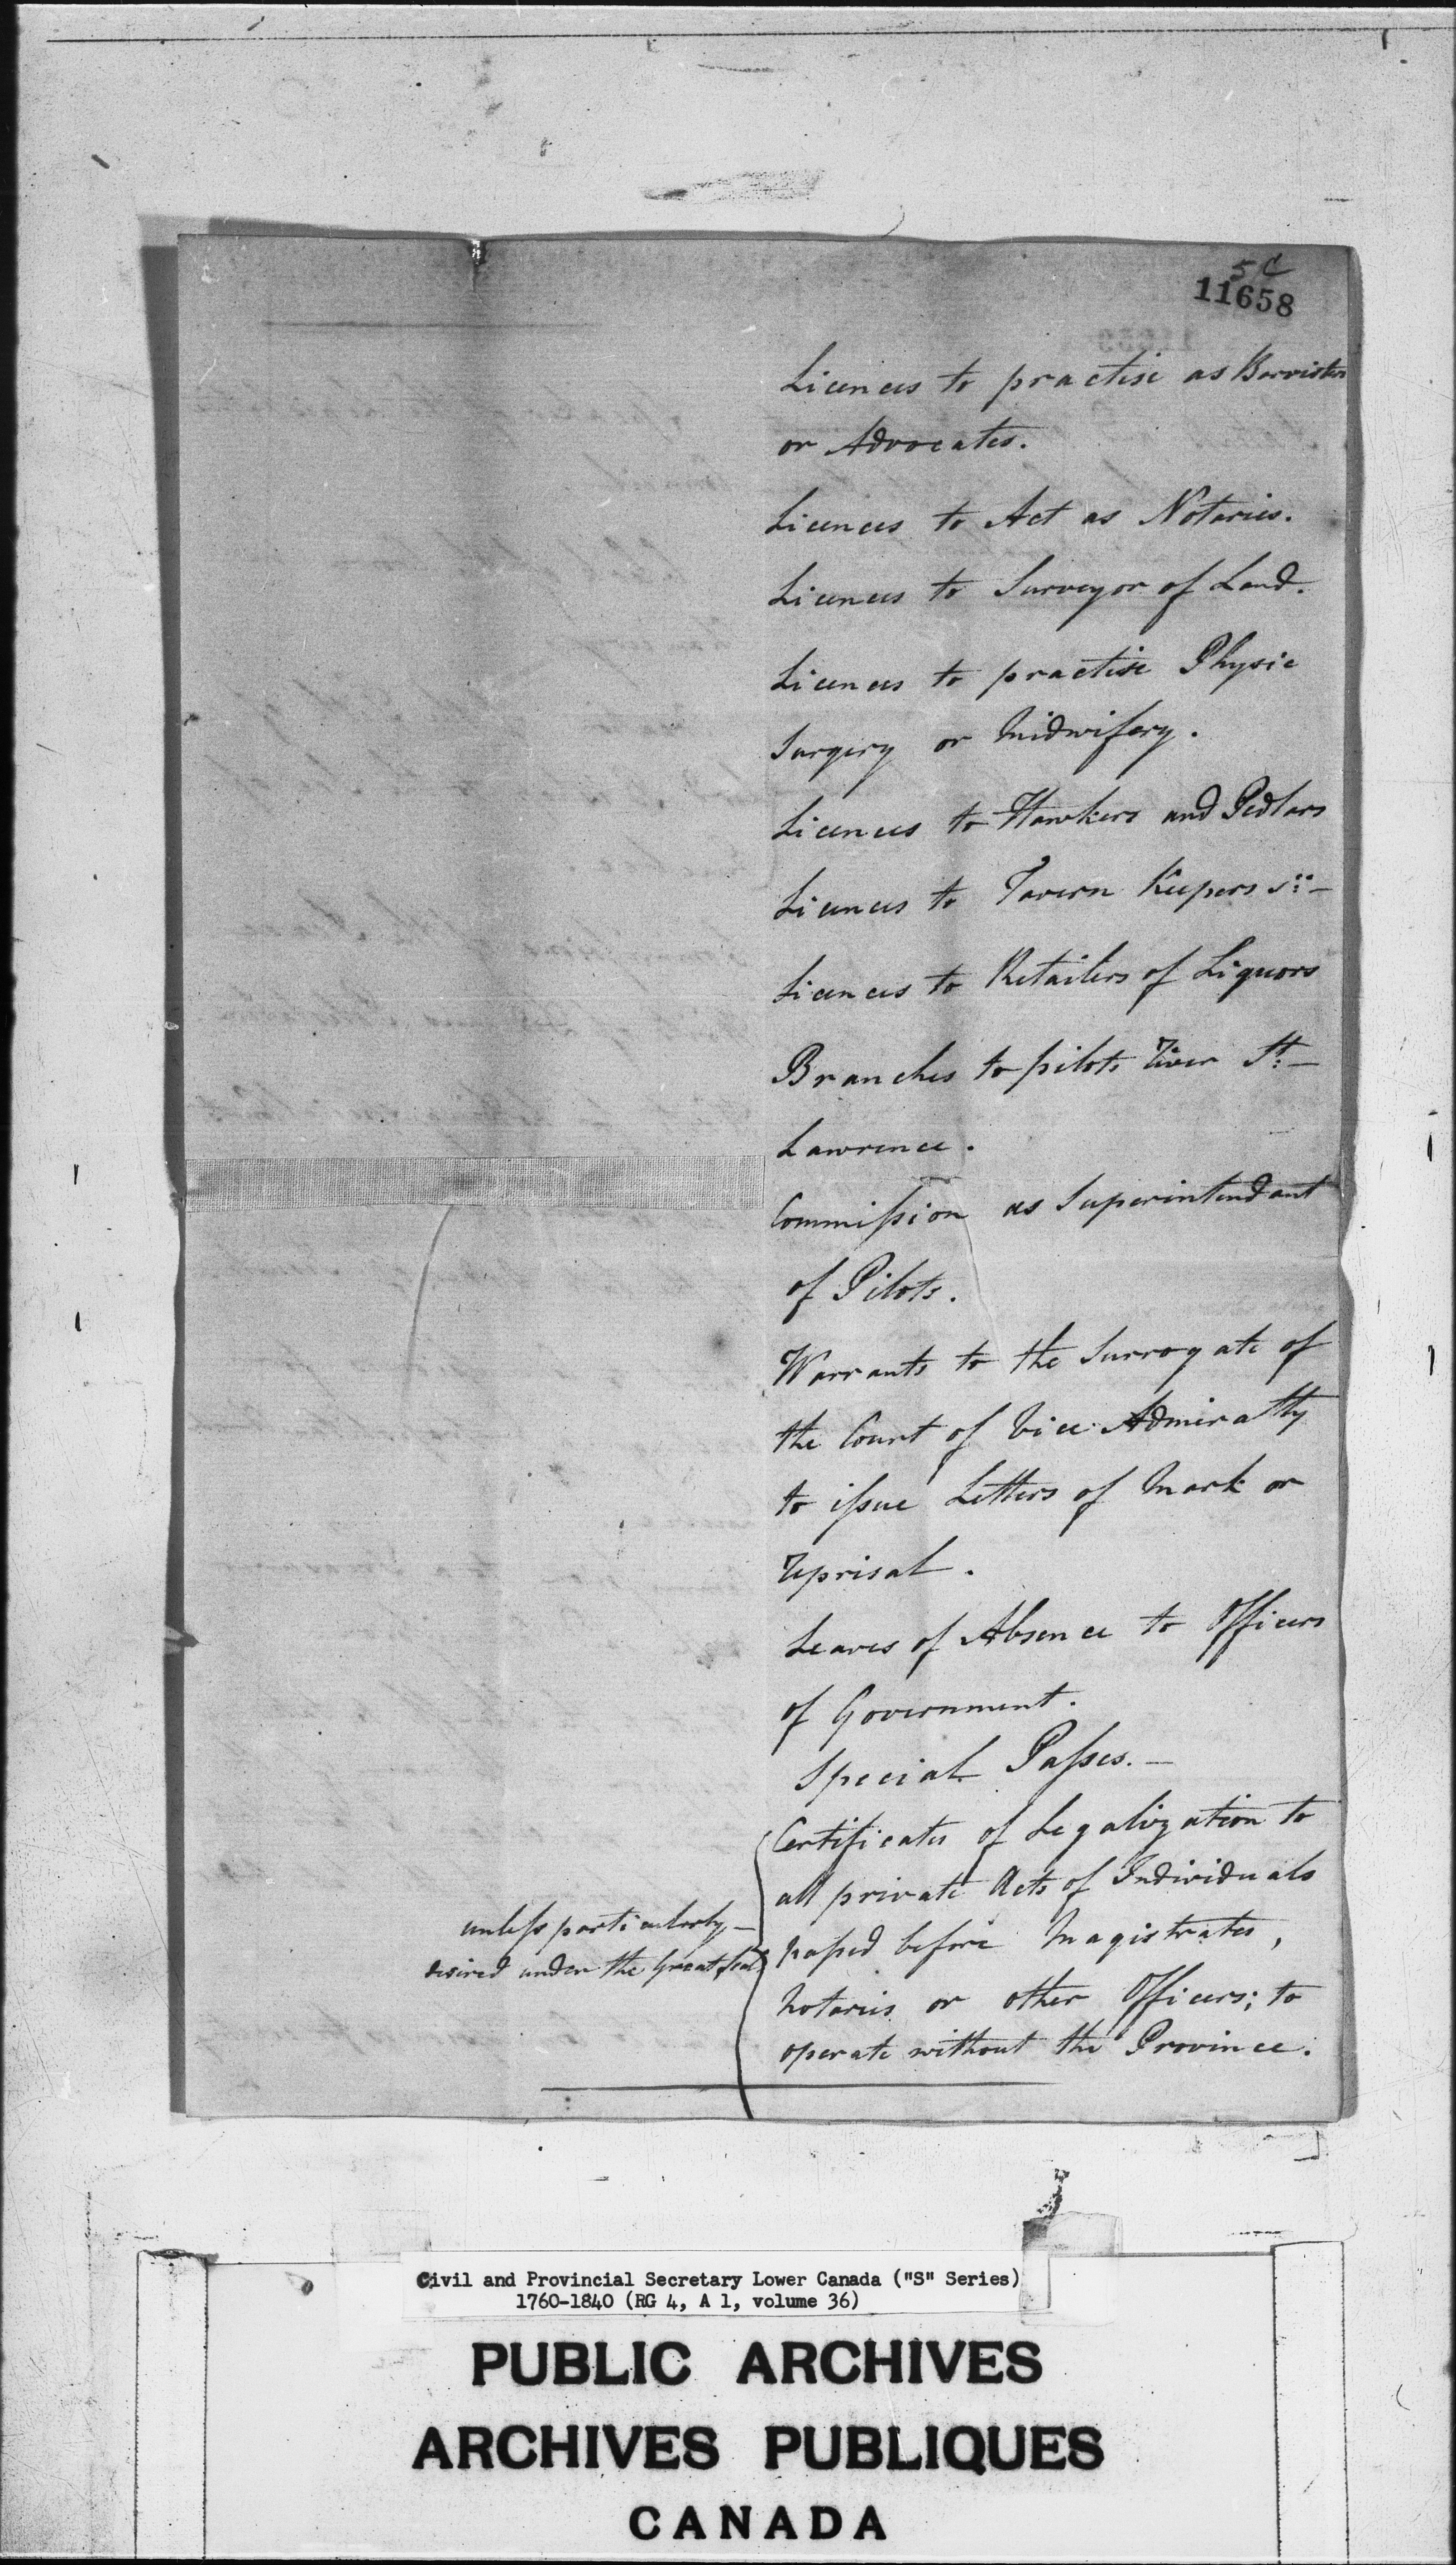 5 C
11658
Licences to practise as Barristers
or Advocates.
Licences to Act as Notaries.
Licences to Surveyor of Land.
Licences to practise Physic
Surgery or Midwifery.
Licences to Hawkers and Pedlars
Licences to Tavern Keepers
Licences to Retailers of Liquors
Branches to pilots River St:
Lawrence.
Commiſsion as Superintendant
of Pilots.
Warrants to the Surrogate of
the Court of Vice Admiralty
to iſsue Letters of Mark or
reprisal.
Leaves of Absence to Officers
of Government.
Special Paſses.—
Certificates of Legalization to
all private Acts of Individuals
unleſs particularly—
paſsed before Magistrates,
desired under the Great Seal
Notaries or other Officers; to
operate without the Province.
Civil and Provincial Secretary Lower Canada ("S" Series)
1760-1840 (RG 4, A 1, volume 36)
PUBLIC ARCHIVES
ARCHIVES PUBLIQUES
CANADA